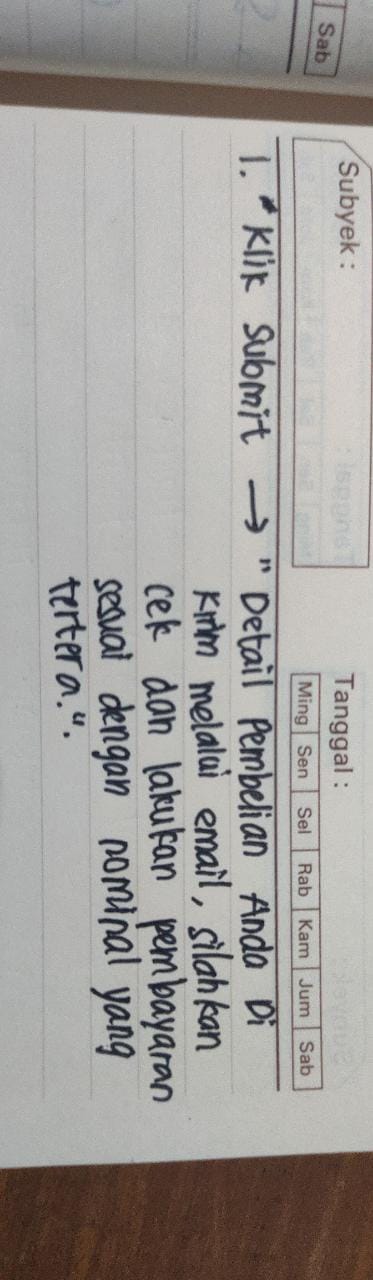 Sab
Subyek :
Tanggal :
Ming Sen Sel Rab Kam Jum Sab
1. "Klik Submit → "Detail Pembelian Anda Di
Kirim melalui email, silahkan
cek dan lakukan pembayaran
sesuai dengan nominal yang
tertera.".